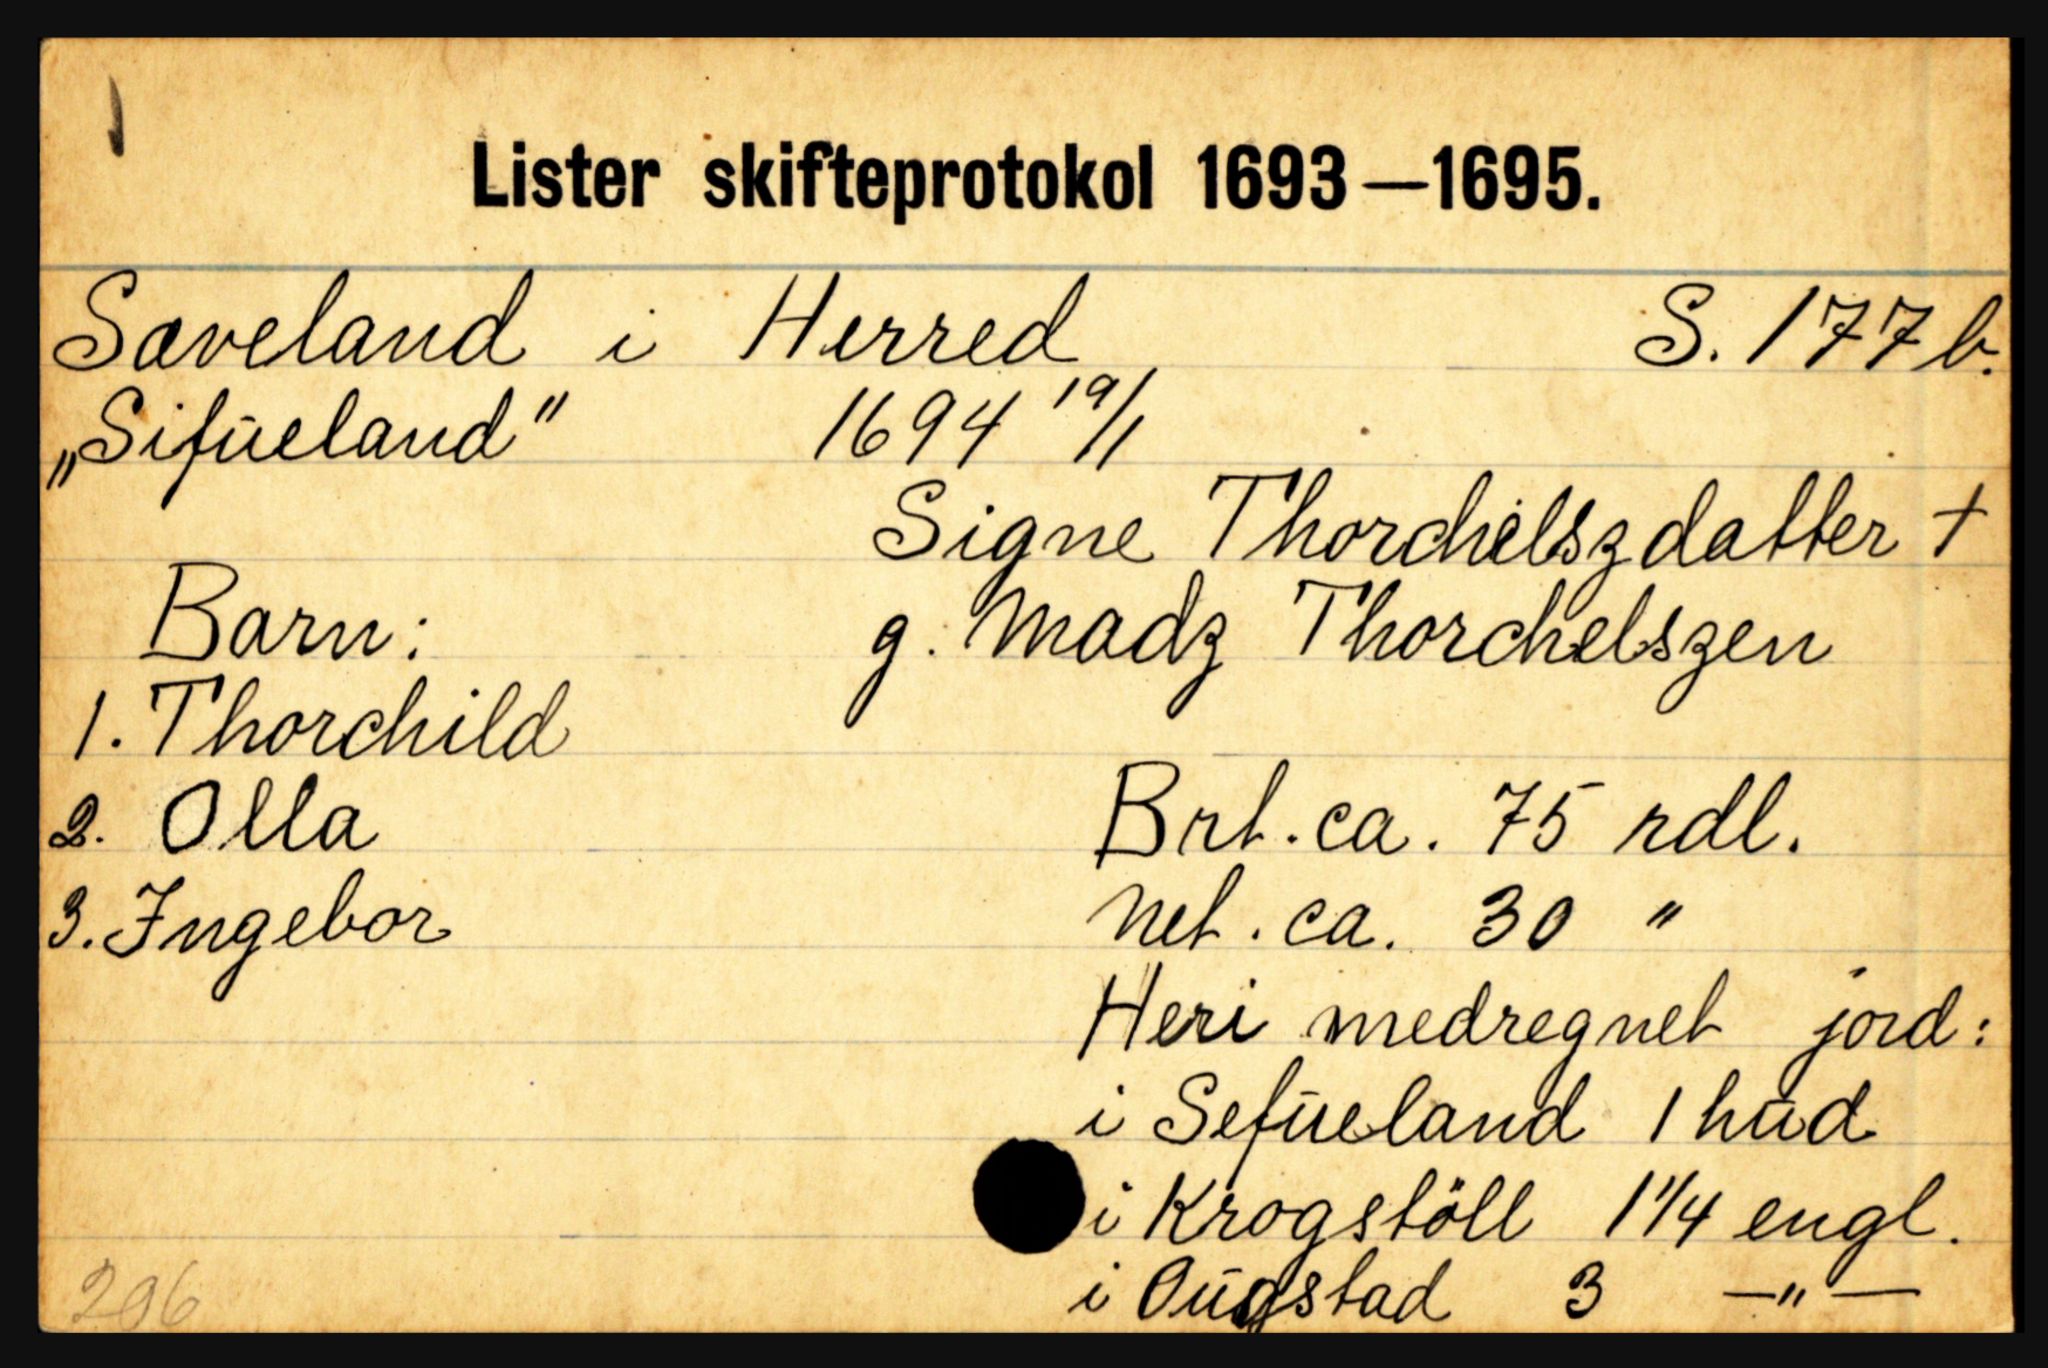 Lister skifteprotokol 1693—1695.
Sæveland i Herred S. 177 b.
„Sifueland" 1694 19/1
Signe Thorchelszdatter +
Barn: g. Madz Thorchelszen
1. Thorchild
2. Olla Brt. ca. 75 rdl.
3. Ingebor net. ca. 30 "
Heri medregnet jord:
i Sefueland 1 hud
i Krogstöll 1 1/4 engl.
i Ougstad 3 —"—
206